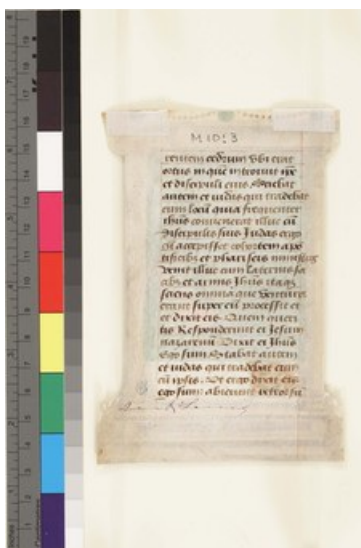 M 10:3
rentem cedrum Vbi erat
ortus in que introiuit ipe
et discipuli eius. Sciebat
autem et iudas qui tradebat
eum locū quia frequenter
ihūs conuenerat illuc cū
discipulis suis Iudas ergo
cū accepisset cohortem a pō
tificibȝ et phariseis ministros
venit illuc cum laternis fa
cibȝ et armis Ihūs itaqȝ
sciens omnia que Ventura
erant super eū processit et
et dixit eis. Quem queri
tis Responderunt ei Jesum
nazarenū Dixit ei Ihūs
Ego sum Stabat autem
et iudas qui tradebat eum
cū ipsis. Vt ergo dixit eis
ego sum abierunt retrorsū